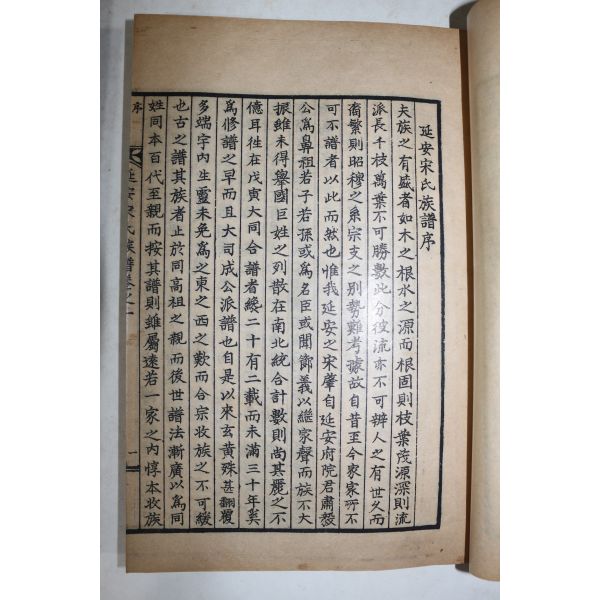 延安宋氏族譜序
夫族之有盛者如木之根水之源而根固則枝葉茂源深則流
派長千枝萬葉不可勝數此分彼流亦不可辨人之有世久而
裔繁則昭穆之系宗支之別勢難考據故自昔至今家家所不
可不譜者以此而然也惟我延安之宋肇自延安府院君肅毅
公爲鼻祖若子若孫或爲名臣或聞節義以繼家聲而族不大
振雖未得擧國巨姓之列散在南北統合計數則尚其麗之不
億耳徃在戊寅大同合譜者綏二十有二載而未滿三十年奚
爲修譜之早而且大司成公派譜也自是以來玄黃殊甚翻覆
多端宇內生靈未免爲之東之西之歎而合宗收族之不可緩
也古之譜其族者止於同高祖之親而後世譜法漸廣以爲同
姓同本百代至親而按其譜則雖屬遠若一家之內惇本收族
序
延安宋氏族譜卷之一
一